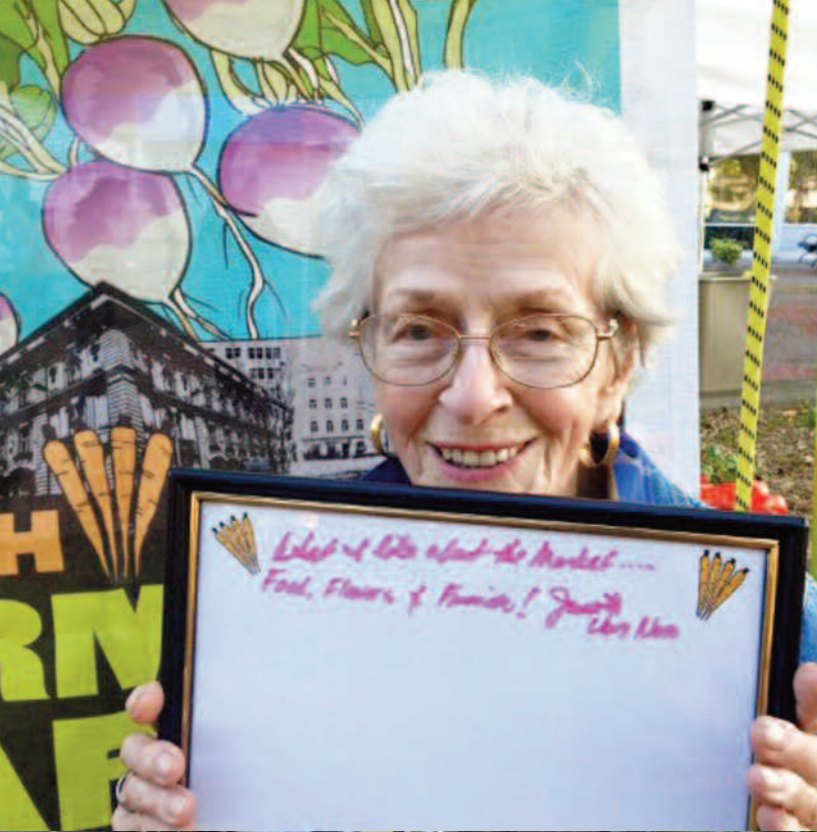 H
RN
What I like about the Market....
Food, Flowers & Farmers!